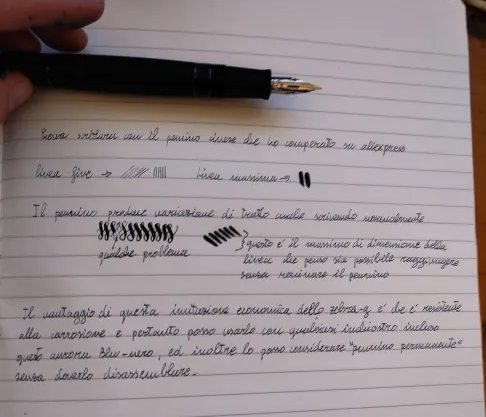 Prova scrittura con il pennino cinese che ho comperato su aliexpress
linea fine → linea massima →
Il pennino produce variazione di tratto anche scrivendo normalmente
qualche problema
questo è il massimo di dimensione della
linea che penso sia possibile raggiungere
senza rovinare il pennino
Il vantaggio di questa imitazione economica dello zebra-g è che è resistente
alla corrosione e pertanto posso usarlo con qualsiasi inchiostro incluso
questo aurora blu-nero, ed inoltre lo posso considerare "pennino permanente"
senza doverlo disassemblare.